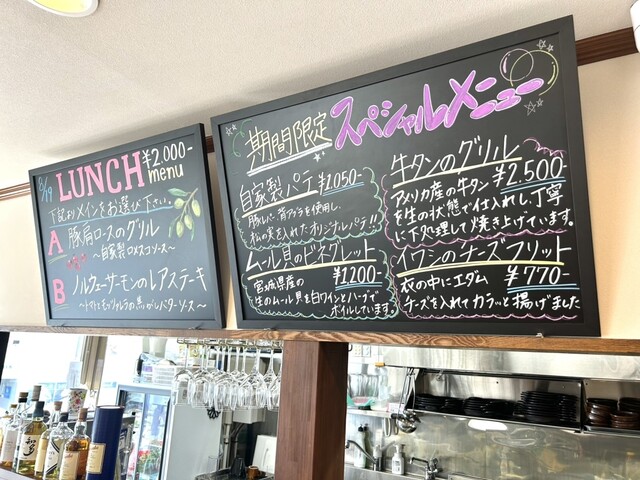 8/19
LUNCH ¥2,000-
menu
下記よりメインをお選び下さい。
A 豚肩ロースのグリル
～自家製ロメスコソース～
B ノルウェーサーモンのレアステーキ
～トマトとモッツァレラの焦がしバターソース～
期間限定 スペシャルメニュー
自家製パテ ¥1,050-
豚レバー、背アブラを使用し、
松の実を入れたオリジナルパテ!!
ムール貝のビネグレット
¥1200-
宮城県産の
生のムール貝を白ワインとハーブで
ボイルしています。
牛タンのグリル
¥2,500-
アメリカ産の牛タン
を生の状態で仕入れし、丁寧
に下処理して焼き上げています。
イワシのチーズフリット
¥770-
衣の中にエダム
チーズを入れてカラッと揚げました